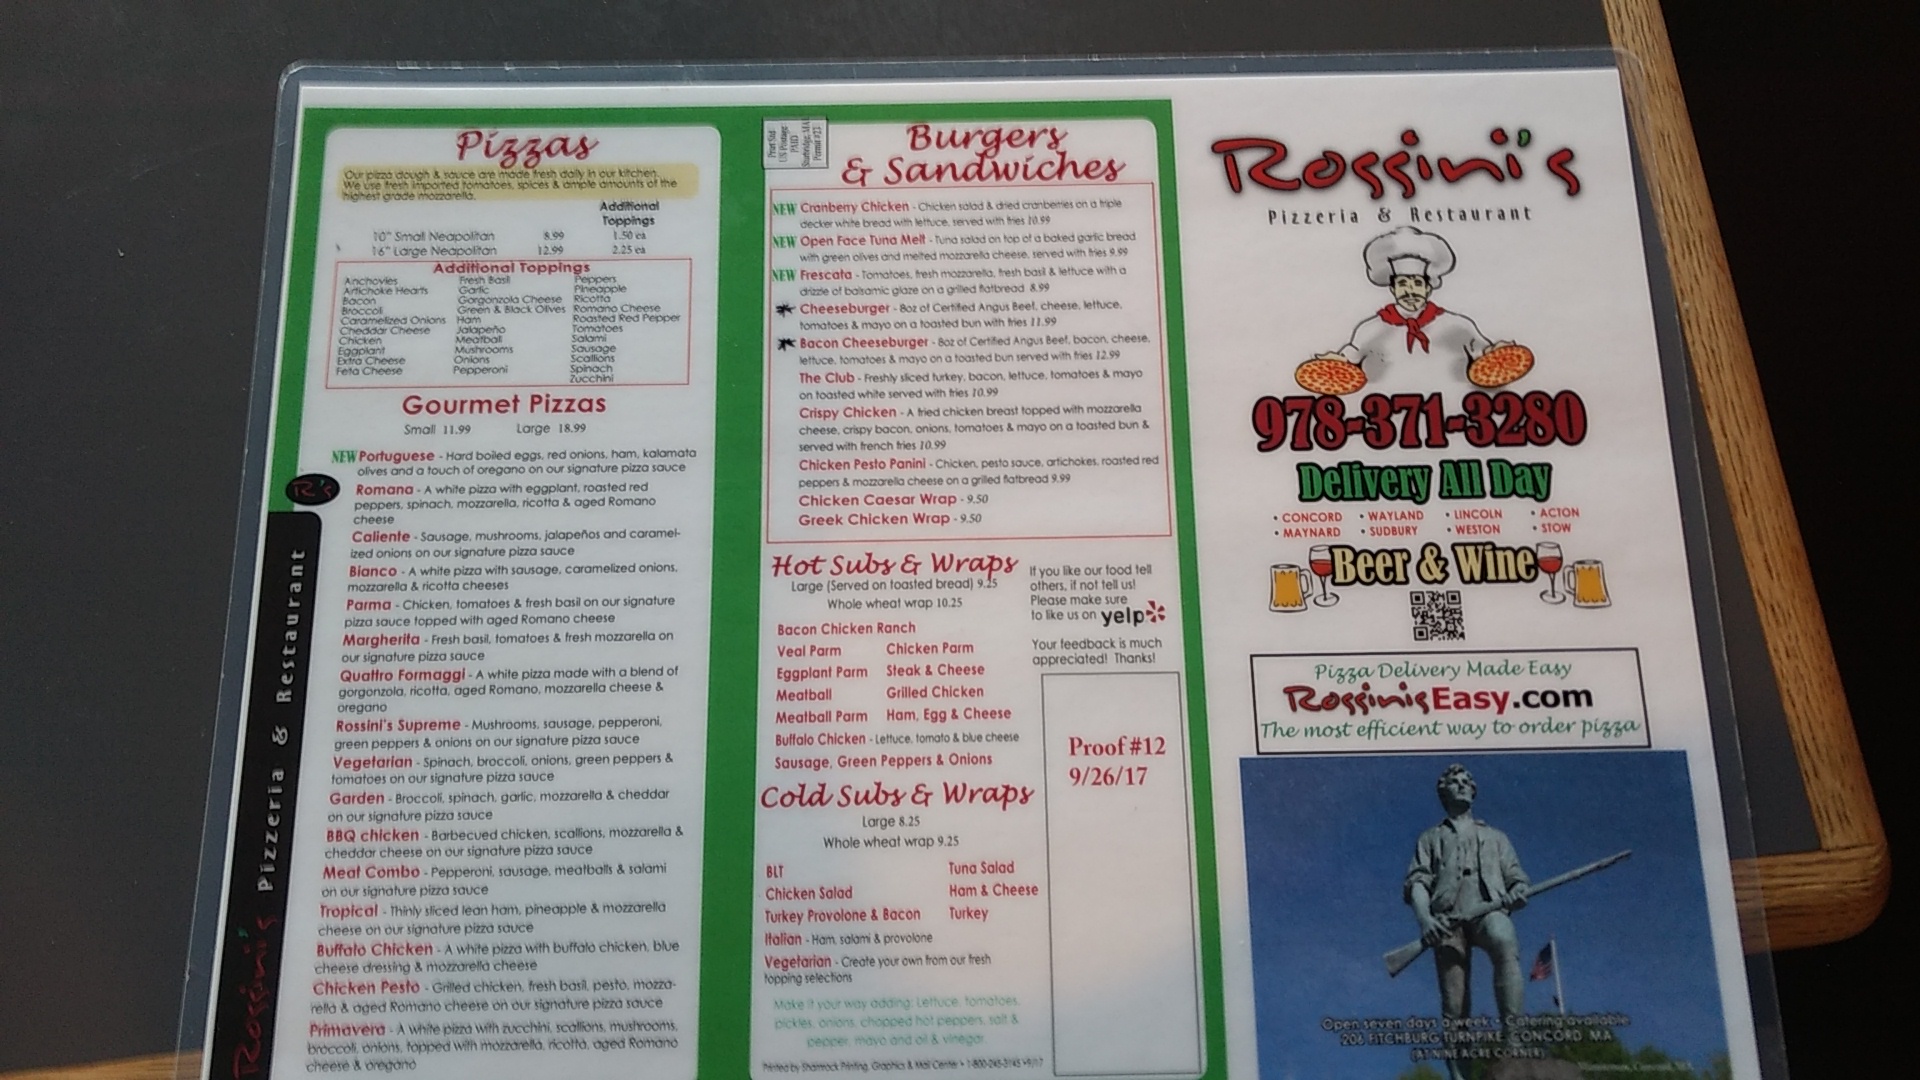 Pizzas
Our pizza dough & sauce are made fresh daily in our kitchen.
We use fresh imported tomatoes, spices & ample amounts of the
highest grade mozzarella.
Additional
Toppings
10" Small Neapolitan 8.99 1.50 ea
16" Large Neapolitan 12.99 2.25 ea
Additional Toppings
Anchovies
Artichoke Hearts
Bacon
Broccoli
Caramelized Onions
Cheddar Cheese
Chicken
Eggplant
Extra Cheese
Feta Cheese
Fresh Basil
Garlic
Gorgonzola Cheese
Green & Black Olives
Ham
Jalapeño
Meatball
Mushrooms
Onions
Pepperoni
Peppers
Pineapple
Ricotta
Romano Cheese
Roasted Red Pepper
Tomatoes
Salami
Sausage
Scallions
Spinach
Zucchini
Gourmet Pizzas
Small 11.99 Large 18.99
NEW Portuguese - Hard boiled eggs, red onions, ham, kalamata
olives and a touch of oregano on our signature pizza sauce
Romana - A white pizza with eggplant, roasted red
peppers, spinach, mozzarella, ricotta & aged Romano
cheese
Caliente - Sausage, mushrooms, jalapeños and caramel-
ized onions on our signature pizza sauce
Bianco - A white pizza with sausage, caramelized onions,
mozzarella & ricotta cheeses
Parma - Chicken, tomatoes & fresh basil on our signature
pizza sauce topped with aged Romano cheese
Margherita - Fresh basil, tomatoes & fresh mozzarella on
our signature pizza sauce
Quattro Formaggi - A white pizza made with a blend of
gorgonzola, ricotta, aged Romano, mozzarella cheese &
oregano
Rossini's Supreme - Mushrooms, sausage, pepperoni,
green peppers & onions on our signature pizza sauce
Vegetarian - Spinach, broccoli, onions, green peppers &
tomatoes on our signature pizza sauce
Garden - Broccoli, spinach, garlic, mozzarella & cheddar
on our signature pizza sauce
BBQ chicken - Barbecued chicken, scallions, mozzarella &
cheddar cheese on our signature pizza sauce
Meat Combo - Pepperoni, sausage, meatballs & salami
on our signature pizza sauce
Tropical - Thinly sliced lean ham, pineapple & mozzarella
cheese on our signature pizza sauce
Buffalo Chicken - A white pizza with buffalo chicken, blue
cheese dressing & mozzarella cheese
Chicken Pesto - Grilled chicken, fresh basil, pesto, mozza-
rella & aged Romano cheese on our signature pizza sauce
Primavera - A white pizza with zucchini, scallions, mushrooms,
broccoli, onions, topped with mozzarella, ricotta, aged Romano
cheese & oregano
R's
Rossini's Pizzeria & Restaurant
Prsrt Std
US Postage
PAID
Sturbridge, MA
Burgers
& Sandwiches
NEW Cranberry Chicken - Chicken salad & dried cranberries on a triple
decker white bread with lettuce, served with fries 10.99
NEW Open Face Tuna Melt - Tuna salad on top of a baked garlic bread
with green olives and melted mozzarella cheese, served with fries 9.99
NEW Frescata - Tomatoes, fresh mozzarella, fresh basil & lettuce with a
drizzle of balsamic glaze on a grilled flatbread 8.99
Cheeseburger - 8oz of Certified Angus Beef, cheese, lettuce,
tomatoes & mayo on a toasted bun with fries 11.99
Bacon Cheeseburger - 8oz of Certified Angus Beef, bacon, cheese,
lettuce, tomatoes & mayo on a toasted bun served with fries 12.99
The Club - Freshly sliced turkey, bacon, lettuce, tomatoes & mayo
on toasted white served with fries 10.99
Crispy Chicken - A fried chicken breast topped with mozzarella
cheese, crispy bacon, onions, tomatoes & mayo on a toasted bun &
served with french fries 10.99
Chicken Pesto Panini - Chicken, pesto sauce, artichokes, roasted red
peppers & mozzarella cheese on a grilled flatbread 9.99
Chicken Caesar Wrap - 9.50
Greek Chicken Wrap - 9.50
Hot Subs & Wraps
Large (Served on toasted bread) 9.25
Whole wheat wrap 10.25
Bacon Chicken Ranch
Veal Parm Chicken Parm
Eggplant Parm Steak & Cheese
Meatball Grilled Chicken
Meatball Parm Ham, Egg & Cheese
Buffalo Chicken - Lettuce, tomato & blue cheese
Sausage, Green Peppers & Onions
If you like our food tell
others, if not tell us!
Please make sure
to like us on yelp
Your feedback is much
appreciated! Thanks!
Proof #12
9/26/17
Cold Subs & Wraps
Large 8.25
Whole wheat wrap 9.25
BLT Tuna Salad
Chicken Salad Ham & Cheese
Turkey Provolone & Bacon Turkey
Italian - Ham, salami & provolone
Vegetarian - Create your own from our fresh
topping selections
Make it your way adding: Lettuce, tomatoes,
pickles, onions, chopped hot peppers, salt &
pepper, mayo and oil & vinegar.
Printed by Shamrock Printing, Graphics & Mail Center • 1-800-245-3145
Rossini's
Pizzeria & Restaurant
978-371-3280
Delivery All Day
• CONCORD • WAYLAND • LINCOLN • ACTON
• MAYNARD • SUDBURY • WESTON • STOW
Beer & Wine
Pizza Delivery Made Easy
RossinisEasy.com
The most efficient way to order pizza
Open seven days a week • Catering available
206 FITCHBURG TURNPIKE, CONCORD, MA
(AT NINE ACRE CORNER)